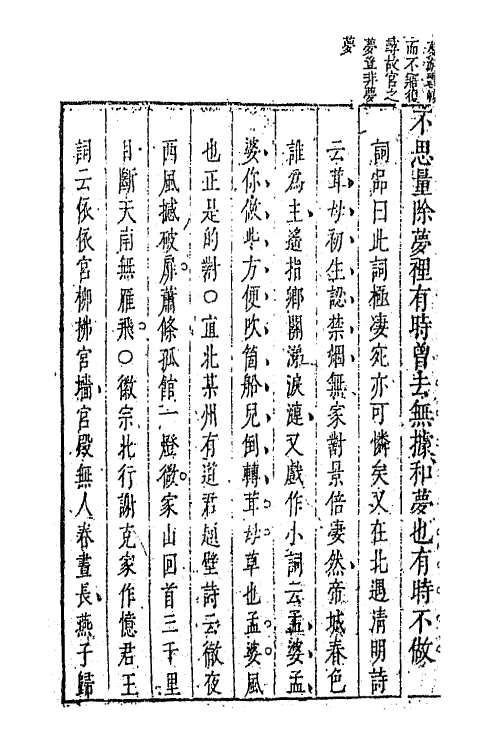 而不寤復
尋故宮之
夢豈非夢
夢
不思量除夢裡有時曾去無據和夢也有時不做
詞品曰此詞極凄宛亦可憐矣又在北遇清明詩
云茸母初生認禁烟無家對景倍凄然帝城春色
誰為主遙指鄉關淚漣又戲作小詞云孟婆孟
婆你做些方便吹箇船兒倒轉茸母草也孟婆風
也正是的對○宜北某州有道君題壁詩云徹夜
西風撼破扉蕭條孤館一燈微家山回首三千里
目斷天南無雁飛○徽宗北行謝克家作憶君王
詞云依依宮柳拂宮墻宮殿無人春晝長燕子歸